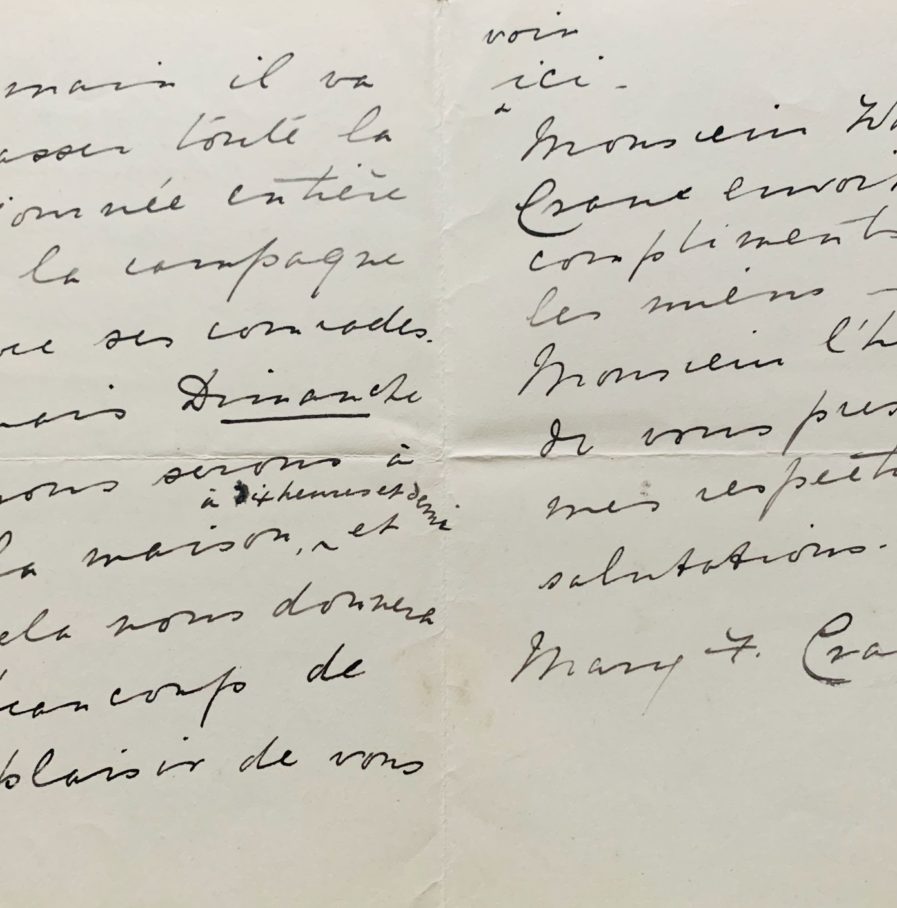 main il va
asser toute la
journée entière
la campagne
ses comrades.
mais Dimanche
nous serons à
à Dix heures et demi
la maison, et
ela nous donnera
beaucoup de
plaisir de vous
voir
ici -
Monsieur
Crane
compliments
les miens -
Monsieur
de vous
mes
salutations.
Mary F. Cra